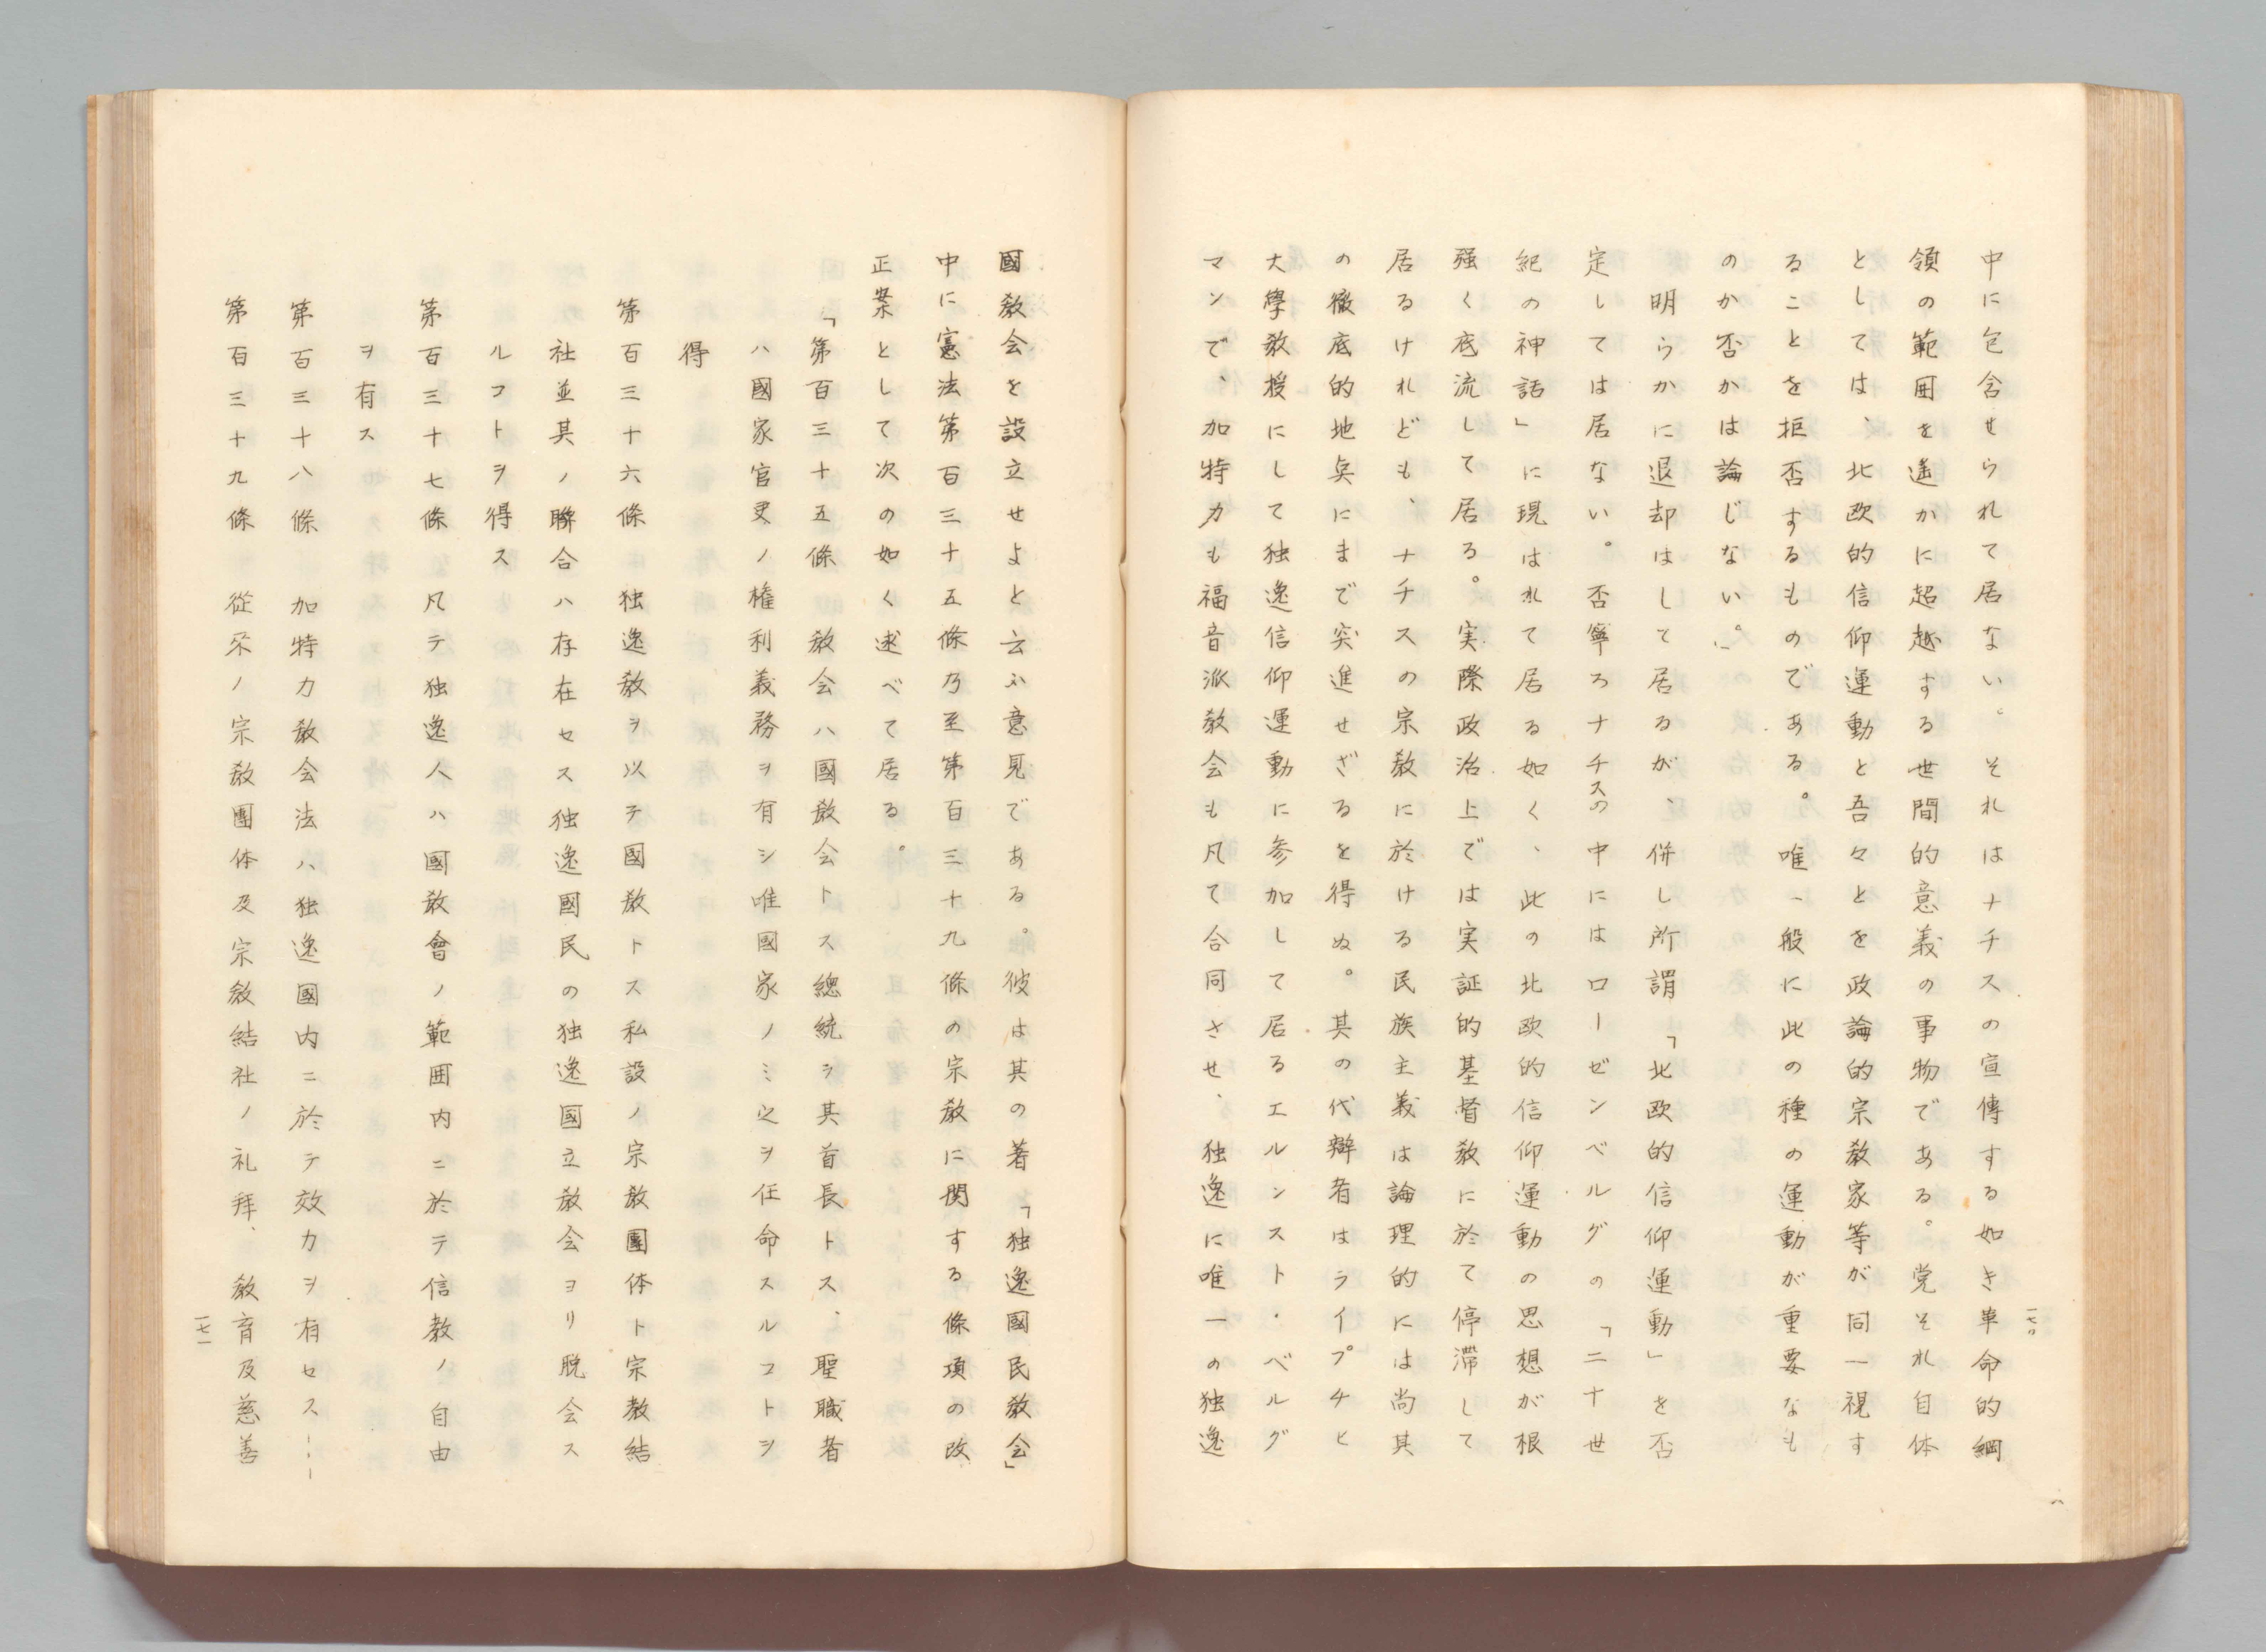 中に包含せられて居ない。それはナチスの宣傳する如き革命的綱
領の範囲を遙かに超越する世間的意義の事物である。党それ自体
としては、北欧的信仰運動と吾々とを政論的宗教家等が同一視す
ることを拒否するものである。唯一般に此の種の運動が重要なも
のか否かは論じない。」
明らかに退却はして居るが、併し所謂「北欧的信仰運動」を否
定しては居ない。否寧ろナチスの中にはローゼンベルグの「二十世
紀の神話」に現はれて居る如く、此の北欧的信仰運動の思想が根
强く底流して居る。実際政治上では実証的基督教に於て停滞して
居るけれども、ナチスの宗教に於ける民族主義は論理的には尚其
の徹底的地点にまで突進せざるを得ぬ。其の代辯者はライプチヒ
大學教授にして独逸信仰運動に参加して居るエルンスト・ベルグ
マンで、加特力も福音派教会も凡て合同させ、独逸に唯一の独逸
一七〇
國教会を設立せよと云ふ意見である。彼は其の著「独逸國民教会」
中に憲法第百三十五條乃至第百三十九條の宗教に関する條項の改
正案として次の如く述べて居る。
「第百三十五條 教会ハ國教会トス總統ヲ其首長トス、聖職者
ハ國家官吏ノ権利義務ヲ有シ唯國家ノミ之ヲ任命スルコトヲ
得
第百三十六條 独逸教ヲ以テ國教トス私設ノ宗教團体ト宗教結
社並其ノ聯合ハ存在セス独逸國民の独逸國立教会ヨリ脱会ス
ルコトヲ得ス
第百三十七條 凡テ独逸人ハ國教會ノ範囲内ニ於テ信教ノ自由
ヲ有ス
第百三十八條 加特力教会法ハ独逸國内ニ於テ效力ヲ有セス‥‥
第百三十九條 從来ノ宗教團体及宗教結社ノ礼拜、教育及慈善
一七一